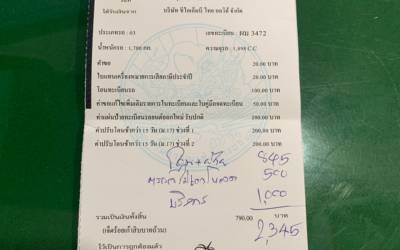 ได้รับเงินจาก บริษัท ซีโฟเก็ตบี ไทย ออโต้ จำกัด
ประเภทรถ : 03 เลขทะเบียน : ผม 3472
น้ำหนักรถ : 1,700 กก. ความจุรถ : 1,998 C.C
ค่าขอ 20.00 บาท
ใบแทนเครื่องหมายการเสียภาษีประจำปี 20.00 บาท
โอนทะเบียนรถ 100.00 บาท
ค่าขอแก้ไขเพิ่มเติมรายการในทะเบียนและใบคู่มือจดทะเบียน 50.00 บาท
ค่าแผ่นป้ายทะเบียนรถยนต์ออกใหม่ รับปกติ 200.00 บาท
ค่าปรับโอนช้ากว่า 15 วัน (ม.17) ช่วงที่ 1 200.00 บาท
ค่าปรับโอนช้ากว่า 15 วัน (ม.17) ช่วงที่ 2 200.00 บาท
845
500
บริการ 1,000
รวมเป็นเงินทั้งสิ้น 790.00 บาท
(เจ็ดร้อยเก้าสิบบาทถ้วน) 2,345
ไว้เป็นการถูกต้องแล้ว